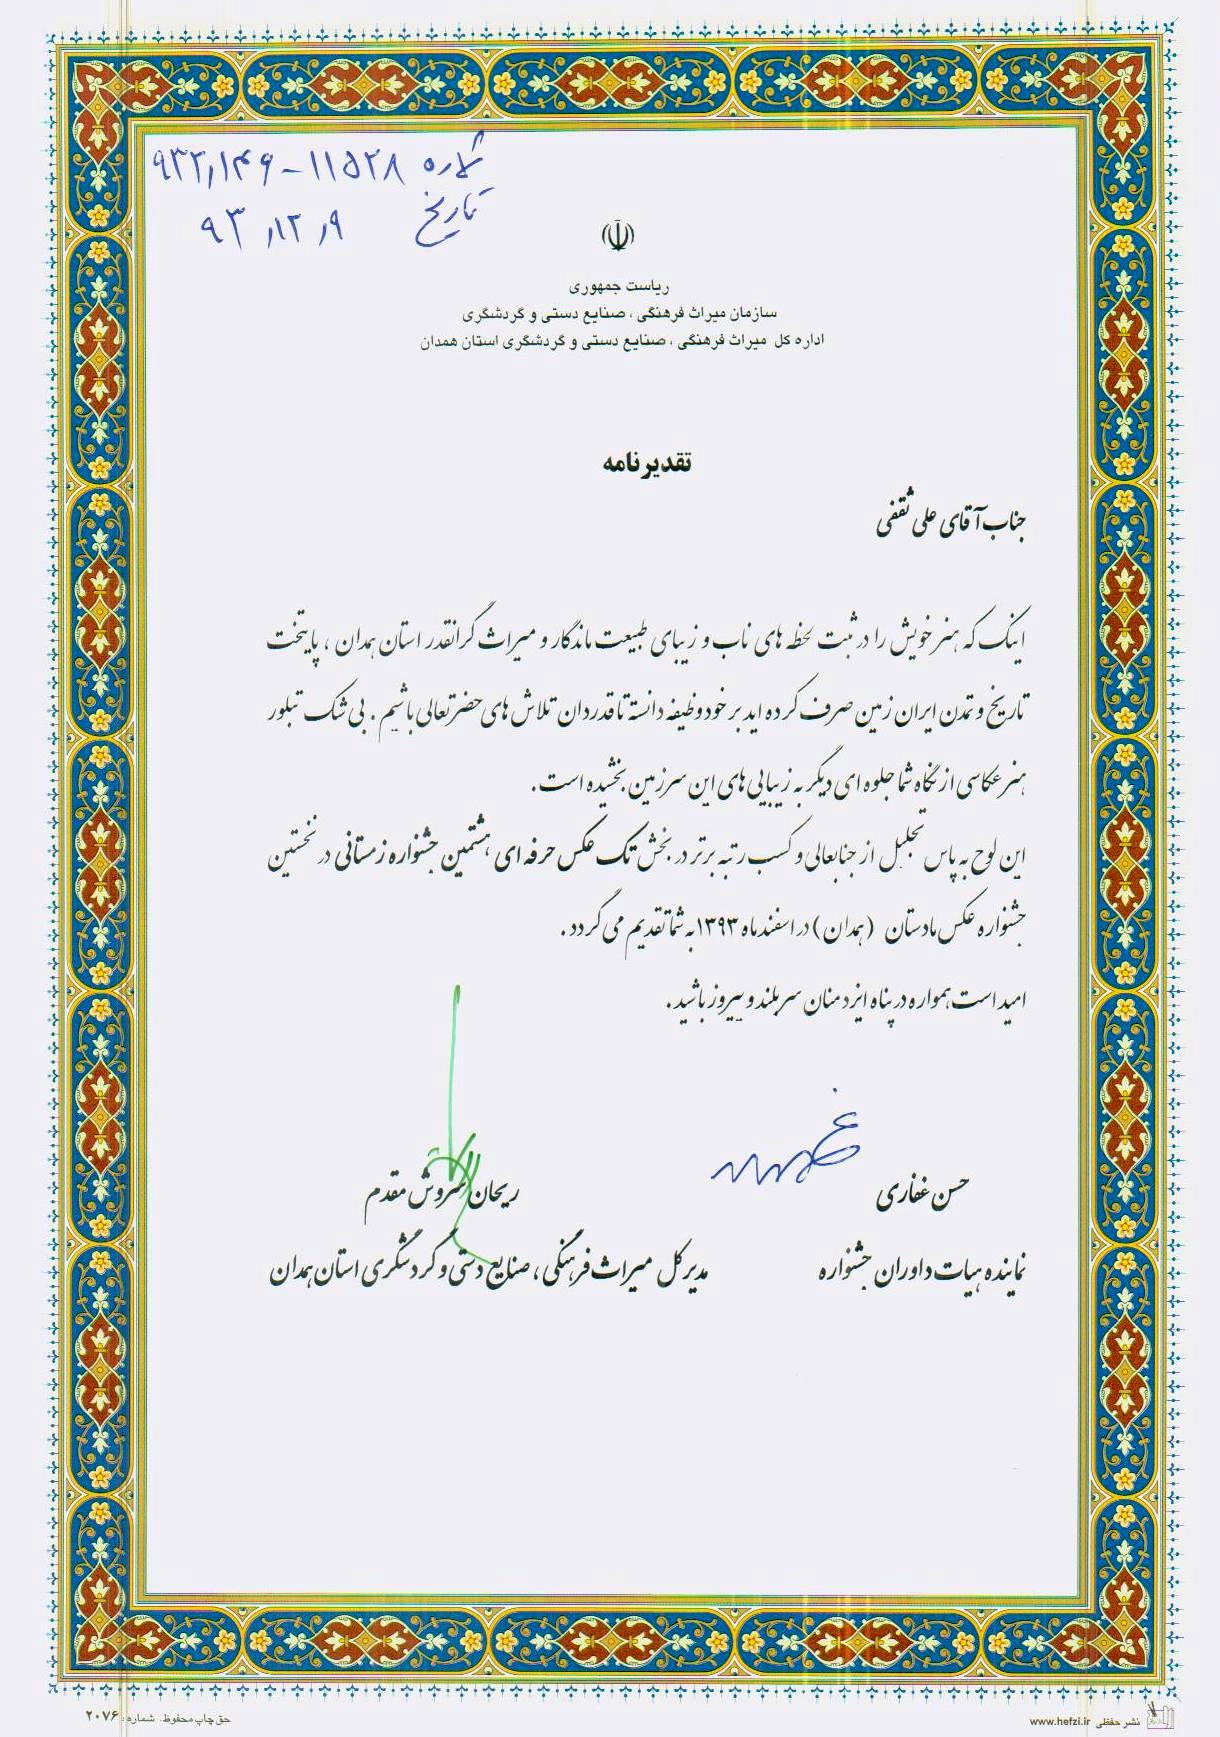 شماره ۱۱۵۲۸-۹۳۲/۱۴۶
تاریخ ۹۳/۱۲/۹
ریاست جمهوری
سازمان میراث فرهنگی ، صنایع دستی و گردشگری
اداره کل میراث فرهنگی ، صنایع دستی و گردشگری استان همدان
تقدیرنامه
جناب آقای علی ثقفی
اینک که هنر خویش را در ثبت لحظه های ناب و زیبای طبیعت ماندگار و میراث گرانقدر استان همدان ، پایتخت
تاریخ و تمدن ایران زمین صرف کرده اید بر خود وظیفه دانسته تا قدردان تلاش های حضرتعالی باشیم . بی شک تبلور
هنر عکاسی از نگاه شما جلوه ای دیگر به زیبایی های این سرزمین بخشیده است .
این لوح به پاس تجلیل از جنابعالی و کسب رتبه برتر در بخش تک عکس حرفه ای هشتمین جشنواره زمستانی در نخستین
جشنواره عکس مادستان (همدان) در اسفند ماه ۱۳۹۳ به شما تقدیم می گردد .
امید است همواره در پناه ایزد منان سربلند و پیروز باشید .
حسن غفاری
نماینده هیات داوران جشنواره
ریحان سروش مقدم
مدیرکل میراث فرهنگی ، صنایع دستی و گردشگری استان همدان
نشر حفظی www.hefzi.ir
حق چاپ محفوظ. شماره : ۲۰۷۶